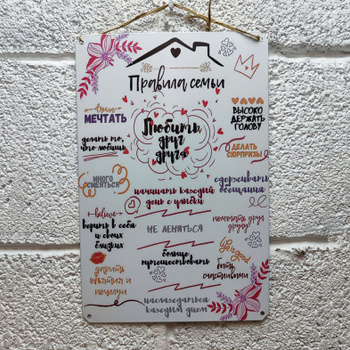 Правила семьи
МЕЧТАТЬ
Любить
друг
друга
ВЫСОКО
ДЕРЖАТЬ
ГОЛОВУ
делать то,
что любишь
ДЕЛАТЬ
СЮРПРИЗЫ
много
смеяться
сдерживать
обещания
начинать каждый
день с улыбки
believe
верить в себя
и своих
близких
НЕ ЛЕНИТЬСЯ
помогать друг
другу
больше
путешествовать
дарить
объятия и
поцелуи
be good
быть
счастливыми
наслаждаться
каждым днем